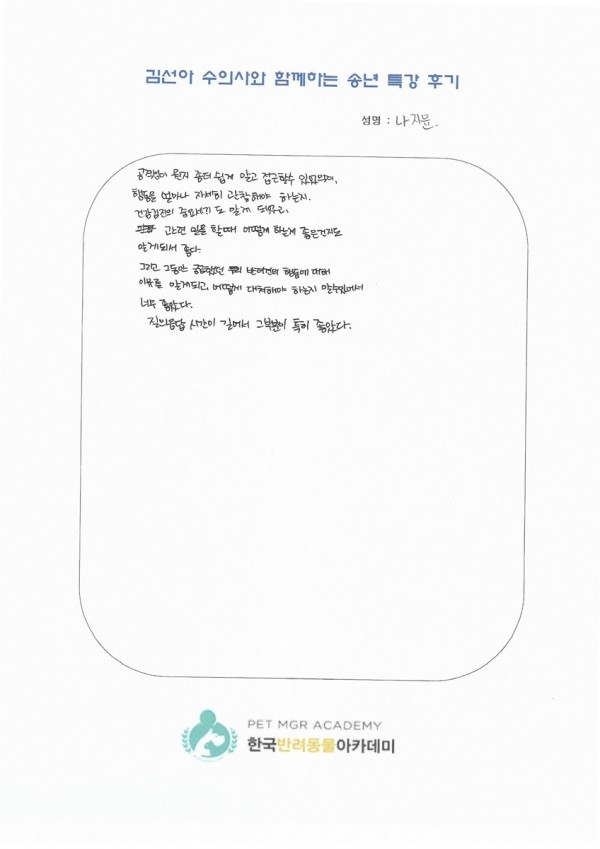 김선아 수의사와 함께하는 송년 특강 후기
성명 : 나지윤.
공격성이 뭔지 좀더 쉽게 알고 접근할수 있었으며,
행동을 얼마나 자세히 관찰해야 하는지.
건강검진의 중요성 도 알게 되었고,
관련 일을 할때 어떻게 하는게 좋은건지도
알게되서 좋다.
그리고 그동안 궁금했던 반려견의 행동에 대해
이유를 알게되고, 어떻게 대처해야 하는지 알수있어서
너무 좋았다.
질의응답 시간이 길어서 그부분이 특히 좋았다.
PET MGR ACADEMY
한국반려동물아카데미